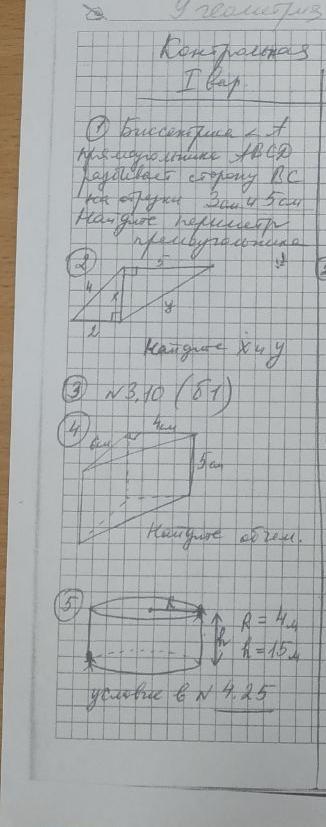 У геометрия
Контрольная
I вар.
① Биссектриса ∠ A
прямоугольника ABCD
разбивает сторону BC
на отрезки 3см и 5см
Найдите периметр
прямоугольника
②
5
4
x
y
2
Найдите x и y
③ №3,10 (б1)
④
4см
6см
5см
Найдите объем.
⑤
R
h
R = 4м
h = 15м
условие в № 4.25